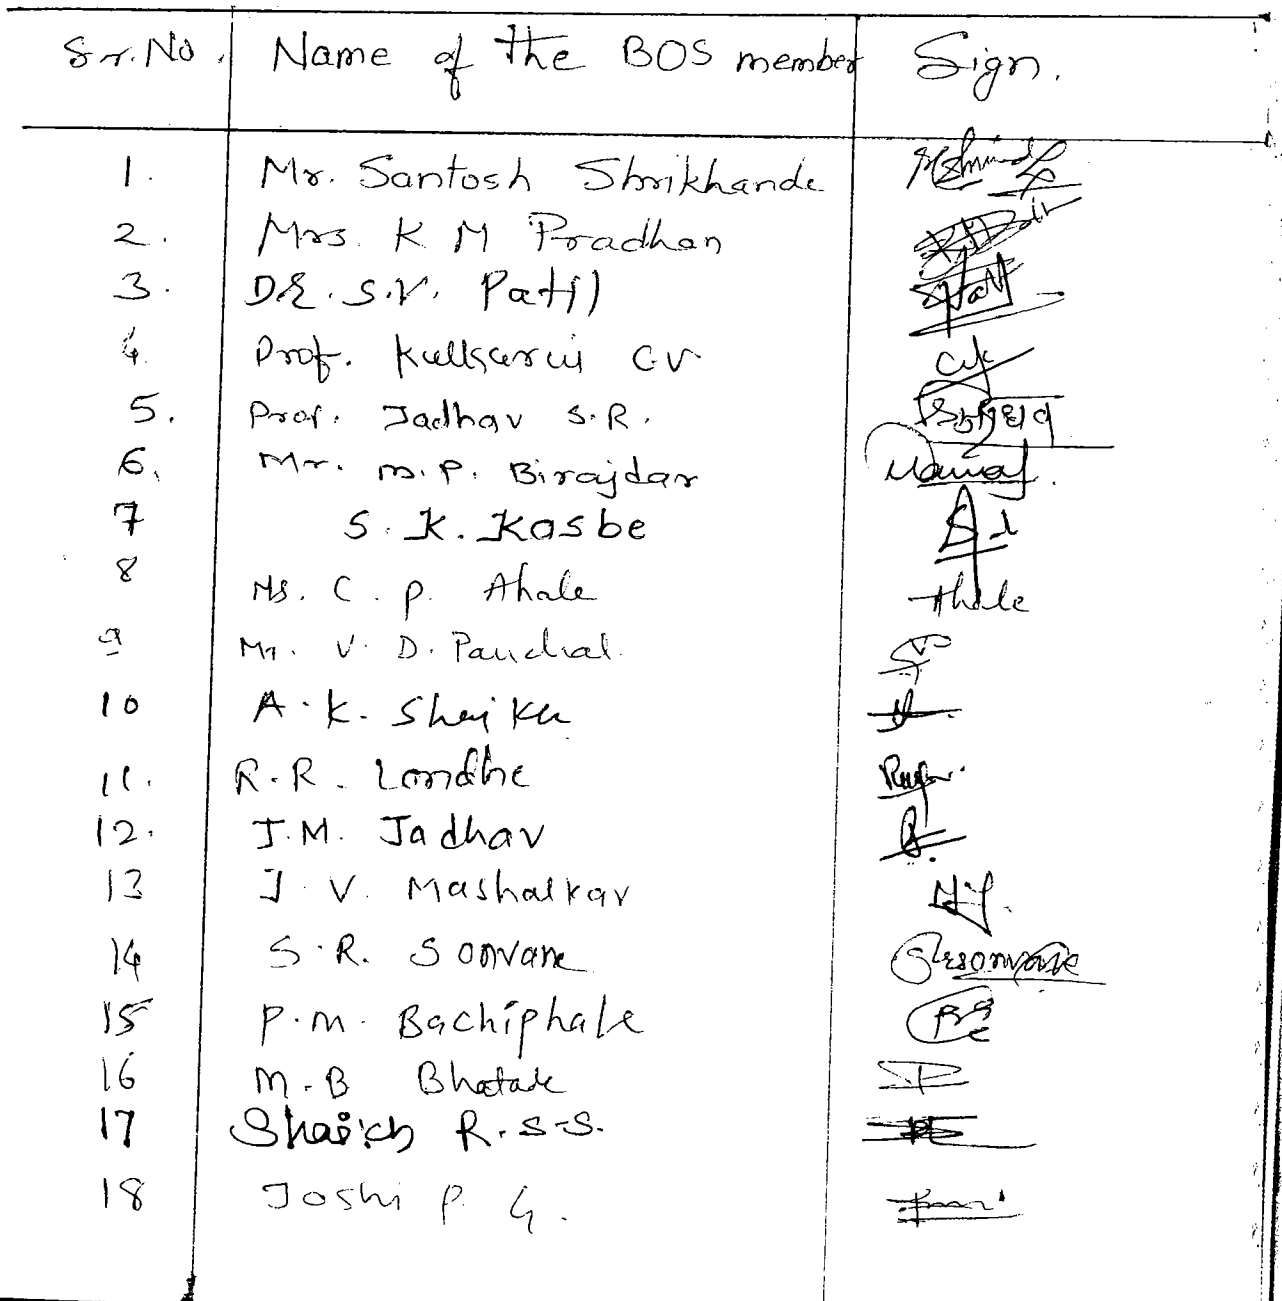 Sr. No. Name of the BOS member Sign.
1. Mr. Santosh Shrikhande
2. Mrs. K M Pradhan
3. Dr. S.V. Patil
4. Prof. Kulkarni GV
5. Prof. Jadhav S.R. जाधव
6. Mr. M.P. Birajdar
7 S. K. Kasbe
8 Ms. C. P. Ahale Ahale
9 Mr. V. D. Panchal
10 A. K. Shaikh
11. R.R. Londhe
12. J.M. Jadhav
13 J. V. Mashalkar
14 S.R. Sonvane Sonvane
15 P.M. Bachiphale
16 M.B Bhatade
17 Shaikh R.S.S.
18 Joshi P. G.